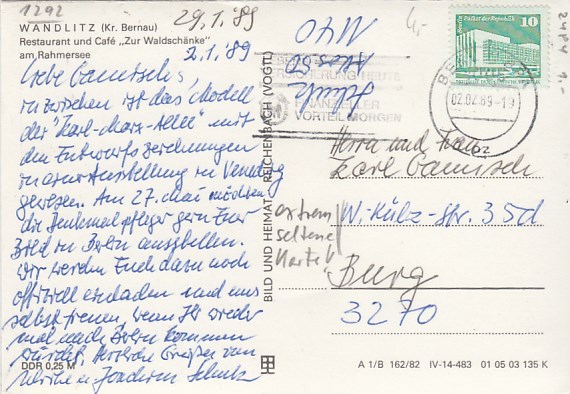 1292
29.1.89
WANDLITZ (Kr. Bernau)
Restaurant und Café „Zur Waldschänke"
am Rahmersee
2.1.89
Liebe Gamisch's,
inzwischen ist das Modell
der "Karl-Marx-Allee" mit
den Entwurfszeichnungen
in einer Ausstellung in Venedig
gewesen. Am 27. Mai möchten
die Denkmalpfleger gern Euer
Bild in Berlin ausstellen.
Wir werden Euch dazu noch
offiziell einladen und uns
selbst freuen, wenn Ihr wieder
mal nach Berlin kommen
würdet. Herzliche Grüße von
und Joachim Schulz
DDR 0,25 M
BILD UND HEIMAT REICHENBACH (VOGTL)
4,-
Schulz
1140
VERSICHERUNG HEUTE
FINANZIELLER
VORTEIL MORGEN
Berlin, Palast der Republik
10
DDR
02.02.89
Herrn und Frau
Karl Gamisch
W.-Külz-Str. 35d
extrem
seltene
Karte!
Burg
3270
A 1/B 162/82 IV-14-483 01 05 03 135 K